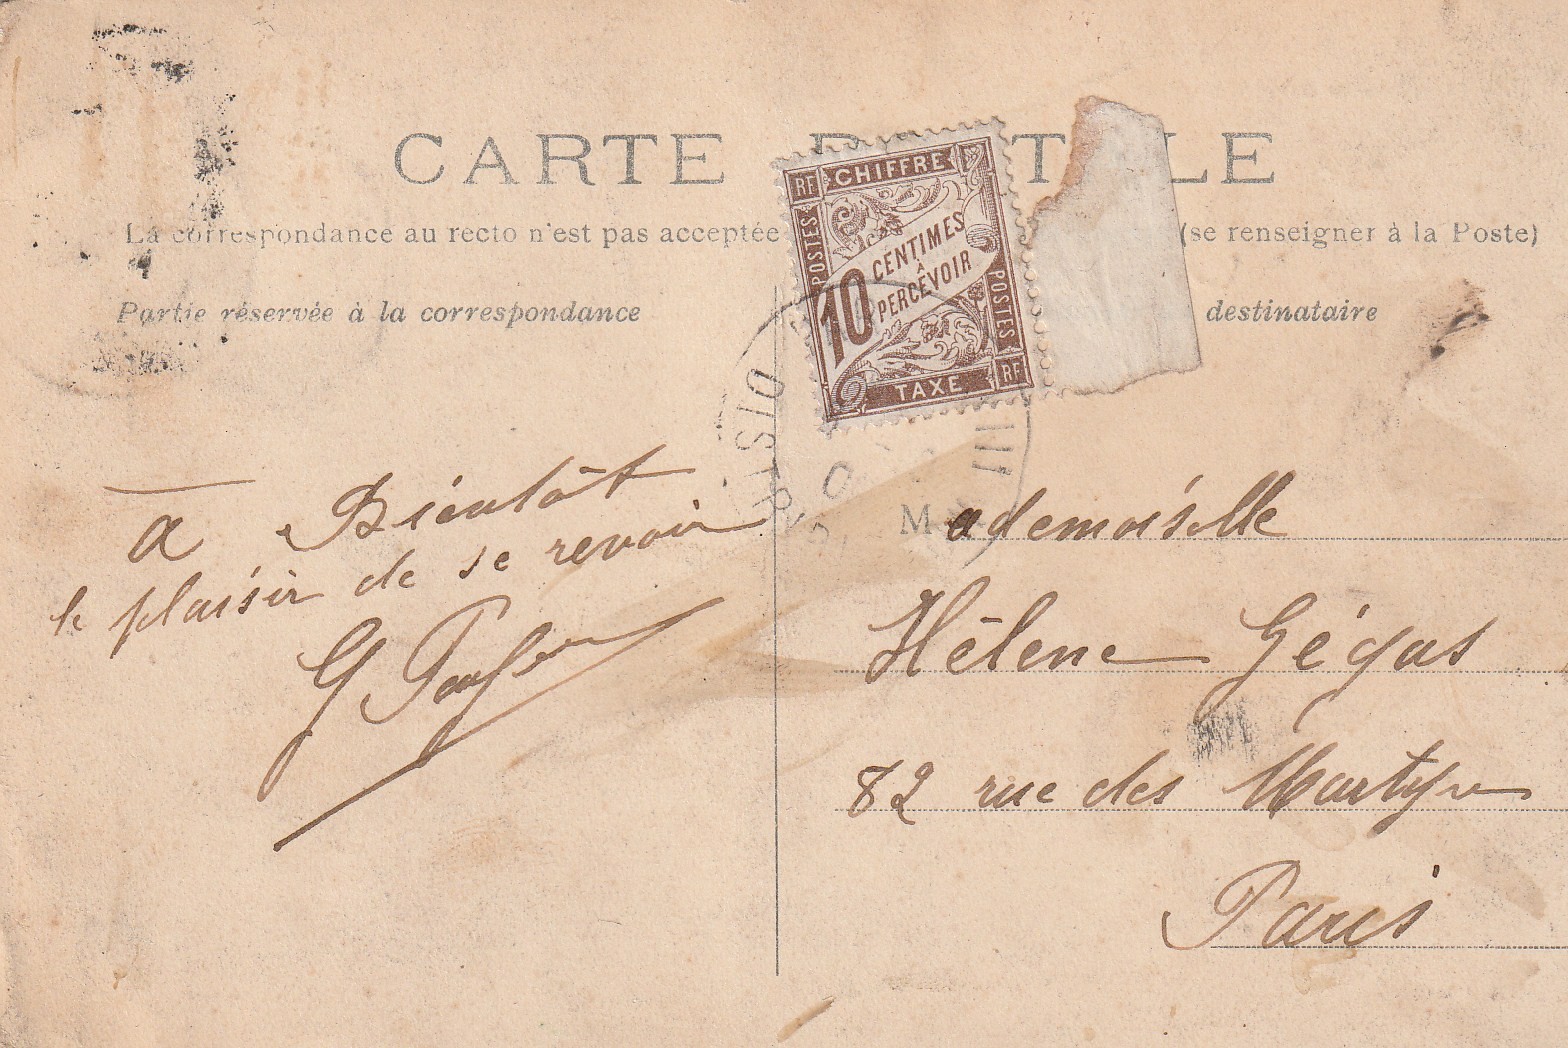 CARTE
LE
La correspondance au recto n'est pas acceptée
(se renseigner à la Poste)
Partie réservée à la correspondance
destinataire
RF CHIFFRE
POSTES
10 CENTIMES
À
PERCEVOIR
POSTES
TAXE RF
à Bientôt
le plaisir de se revoir
G
Mademoiselle
Hélène Gégas
82 rue des Martyrs
Paris